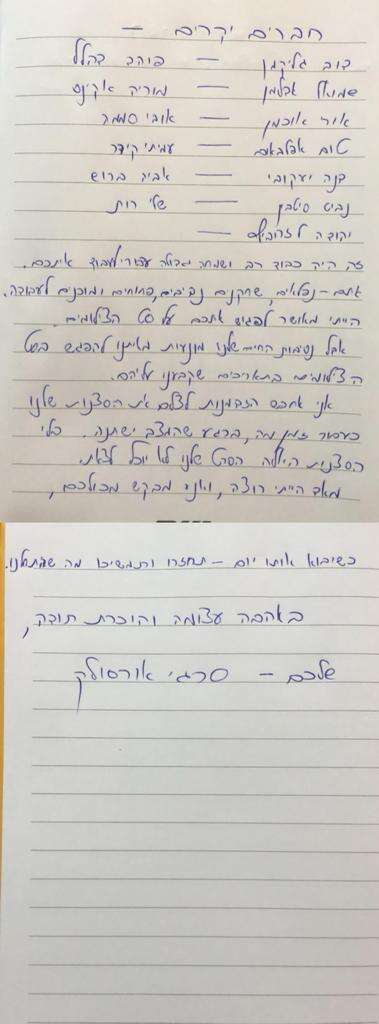 חברים יקרים —
דוב גליקמן — פורהב בהלל
שמואל אבלמן — מוריה אקונס
אורי אוכמן — אובי סממר
טום אפלבאום — עמיתי קידר
דנה יעקובי — אביב ברוש
נביט סיטבן — שלי רות
יהודה לזרוביץ —
זה היה כבוד רב ושמחה גדולה עבורי לעבוד איתכם.
אתם - נפלאים, שחקנים נדיבים, פתוחים ומוכנים לעבודה.
הייתי מאושר לפגוש אתכם על סט הצילומים.
אבל נסיבות החיים שלנו מונעות מאיתנו להפגש בסט
הצילומים בתאריכים שקבענו עליהם.
אני אחפש הזדמנות לצלם את הסצנות שלנו
כעבור זמן מה, ברגע שהמצב ישתנה. בלי
הסצנות האלה הסרט שלנו לא יוכל לצאת.
מאד הייתי רוצה, ואני מבקש מכולכם,
כשיבוא אותו יום - תחזרו ותמשיכו מה שהתחלנו.
באהבה עצומה והוכרת תודה,
שלכם - סרגי אורסולק